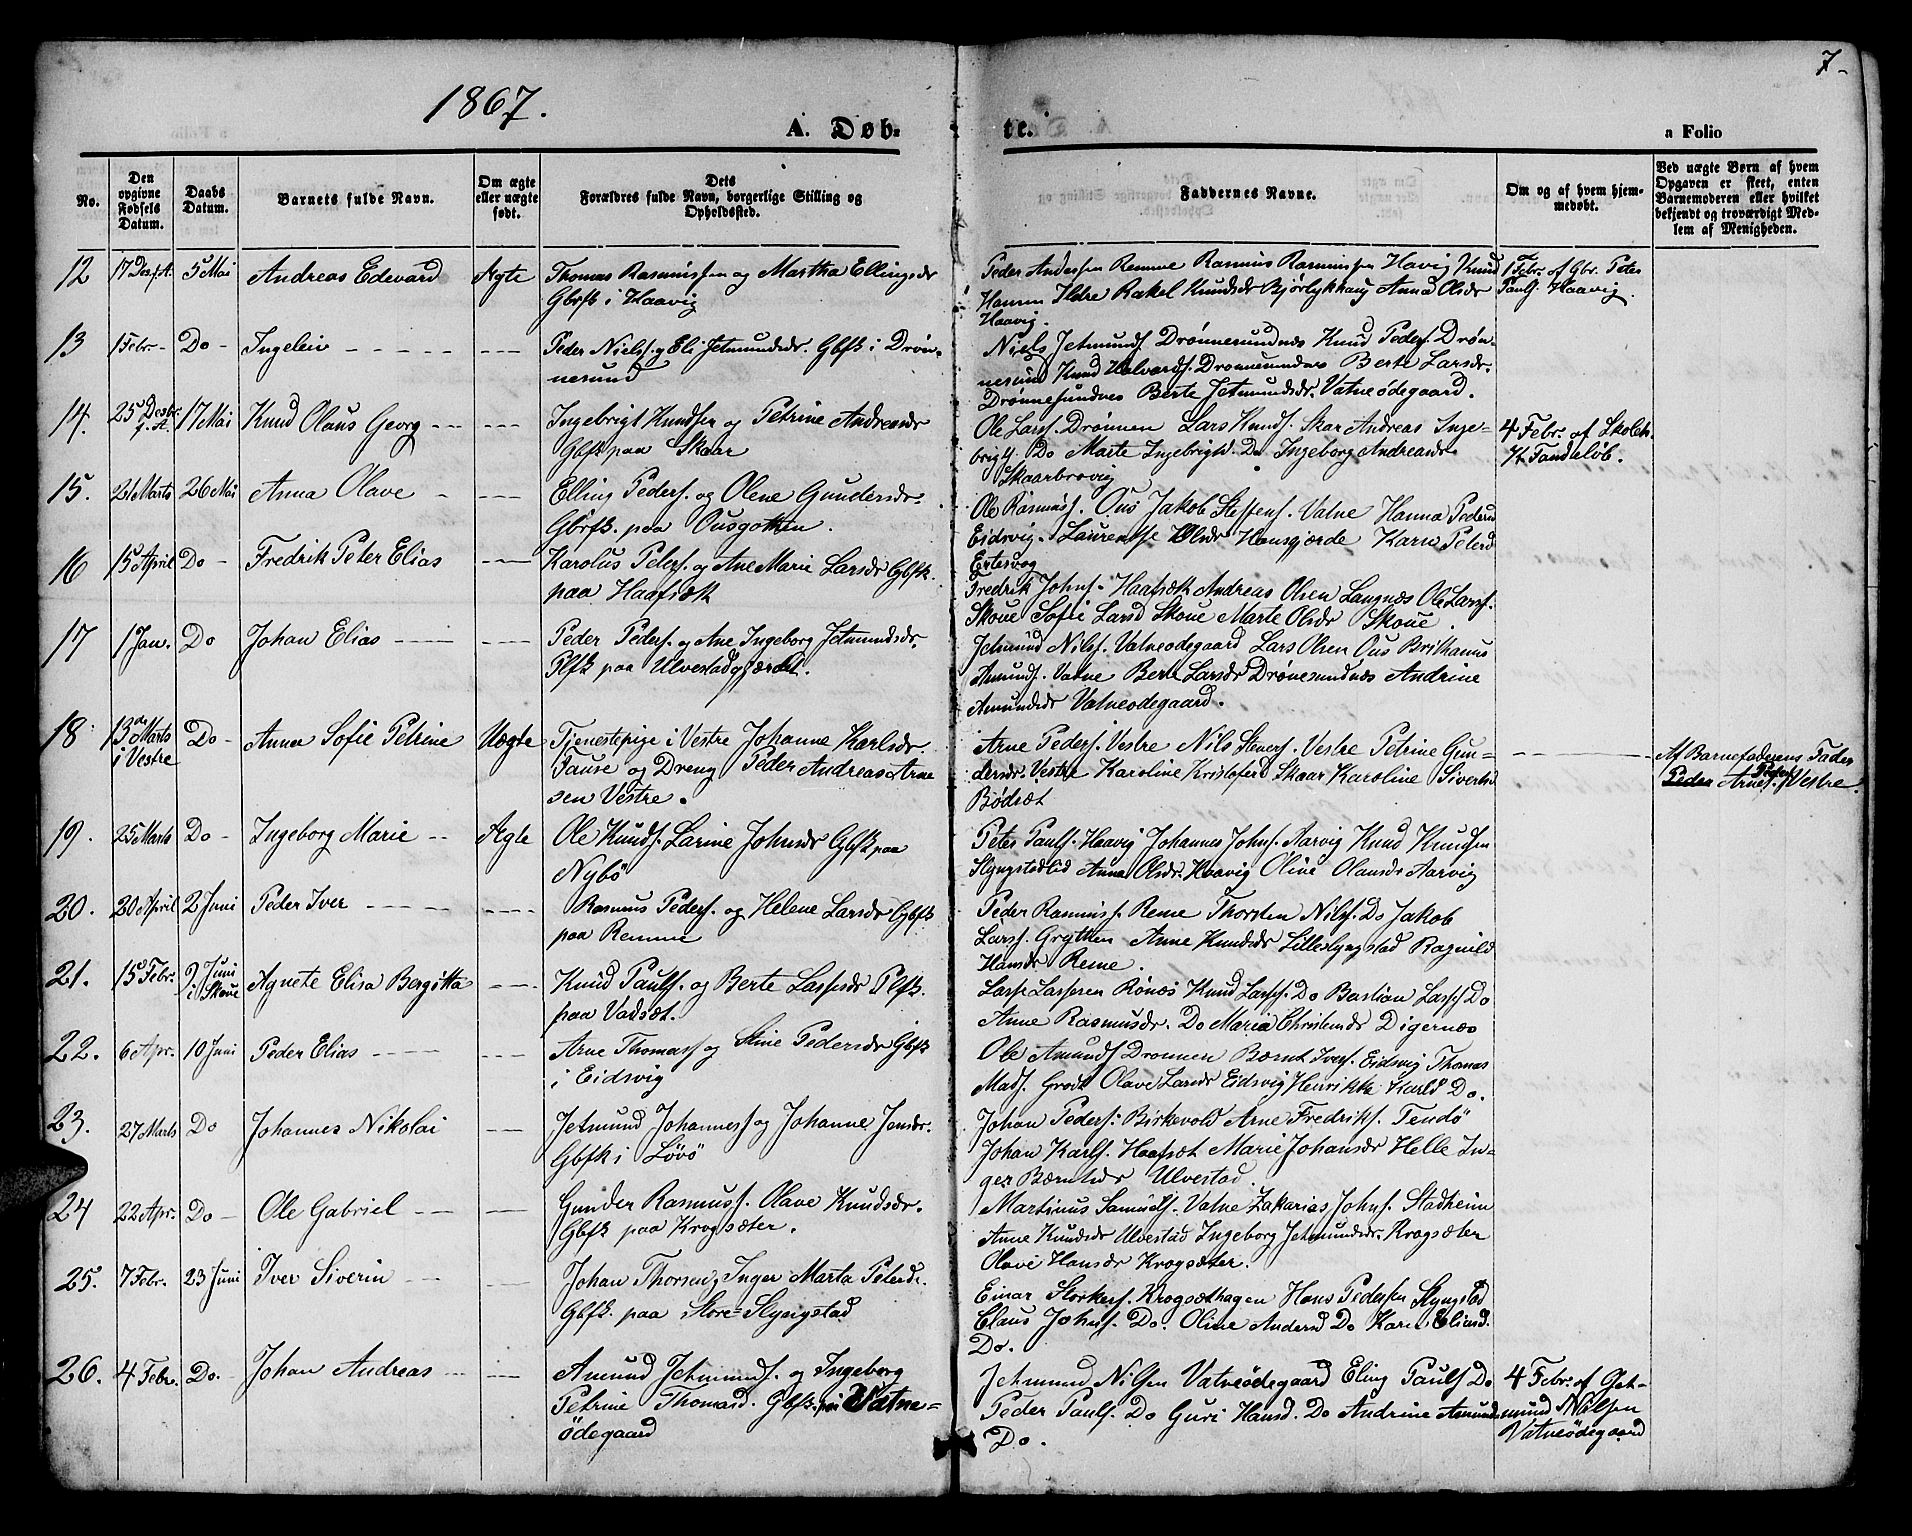 7
1867.
A. Døb-
te.
a Folio
No.
Den opgivne Fødsels Datum.
Daabs Datum.
Barnets fulde Navn.
Om ægte eller uægte født.
Dets Forældres fulde Navn, borgerlige Stilling og Opholdssted.
Faddernes Navne.
Om og af hvem hjemmedøbt.
Ved uægte Børn af hvem Opgaven er skeet, enten Barnemoderen eller hvilket bekjendt og troværdigt Medlem af Menigheden.
12 17 Des. f. A. 5 Mai Andreas Edevard Ægte Thomas Rasmussen og Martha Ellingsdr
Gbrfk i Haavig
Peder Andersen Remme Rasmus Rasmussen Havig Knud
Hansen Ildre Rakel Knudsdr Bjørlykhaug Anna Olsdr
Haavig.
1 Febr. af Gbr. Peter
Pauls. Haavig.
13 1 Febr. - Do - Ingelein - - - Peder Niels. og Eli Jetmundsdr. Gbfk i Drøn-
nesund
Niels Jetmunds. Drønnesundnes Knud Peders. Drøn-
nesund Knud Halvards. Drønnesundnes Berte Larsdr.
Drønnesundnes Berte Jetmundsdr. Vatneødegaard.
14. 25 Desbr. f. A. 17 Mai Knud Olaus Georg - - - Ingebrigt Knudsen og Petrine Andreasdr
Gbfk paa Skaar
Ole Lars. Drønnen Lars Knuds. Skar Andreas Inge-
brigt. Do Marte Ingebrigtd. Do Ingeborg Andreasdr
Skaarbrovig
4 Febr. af Skoleh.
H. Tandeløb.
15. 21 Marts 26 Mai Anna Olave - - - Elling Peders. og Olene Gundersdr.
Gbrfk. paa Ousgothen.
Ole Rasmus. Ous Jakob Steffens. Vatne Hanna Pedersd
Eidsvig. Laurentse Olsdr Hansgjerde Karn Petersd
Ertesvog
16 15 April Do - Fredrik Peter Elias - - - Karolus Peters. og Ane Marie Larsdr Gbfk.
paa Haafsæt
Fredrik Johns. Haafsæth Andreas Olsen Langnæs Ole Lars.
Skoue Sofie Larsd Skoue Marte Olsdr Skoue.
17 1 Jan. Do Johan Elias - - - Peder Peders. og Ane Ingeborg Jetmundsdr.
Plfk paa Ulvestadgjærdet.
Jetmund Nils. Vatneødegaard Lars Olsen Ous Brithanus
Amunds. Vatne Berte Larsdr Drønesundnæs Andrine
Amundsdr Vatneødegaard.
18 13de Marts i Vestre Do - Anna Sofie Petrine Uægte Tjenestepige i Vestre Johanne Karlsdr.
Fause og Dreng Peder Andreas Arne
sen Vestre.
Arne Peders. Vestre Nils Steners. Vestre Petrine Gun-
dersdr. Vestre Karoline Kristoferd Skaar Karoline Sivertsd
Bødsæt
Af Barnefaderens Fader
Peder Arne Peders. Vestre.
19. 25 Marts Do - Ingeborg Marie - - Ægte Ole Knuds. Larine Johnsdr Gbfk paa
Nybø
Peter Pauls. Haavig Johannes Johns. Aarvig Knud Knudsen
Slyngstadlid Anna Olsdr. Haavig Oline Olausdr Aarvig
20. 20 April 2 Juni Peder Iver - - - Rasmus Peders. og Helene Larsdr Gbfk
paa Remme
Peder Rasmus. Reme Thorsten Nils. Do Jakob
Lars. Grytten Anne Knudsdr Lilleslyngstad Ragnild
Hansdr Reme.
21. 15 Febr. 9 Juni i Skoue Agnete Elisa Bergitta - - - Knud Pauls. og Berte Larsesdr Plfk.
paa Vadsæt.
Larse Larsesen Rønæs Knud Lars. Do Bastian Lars. Do
Anne Rasmusdr. Do Maria Christensdr Digernæs
22. 6 Apr. 10 Juni Peder Elias - - - Arne Thomass og Stine Pedersdr Gbfk
i Eidsvig
Ole Amunds Drønnen Bærnt Ivers. Eidsvig Thomas
Mads. Grodt Olave Larsdr Eidsvig Henrikke Karlsd Do.
23. 27 Marts Do Johannes Nikolai - - Jetmund Johanness og Johanne Jonsdr.
Gbfk i Løvø
Johan Peders. Birkevold Arne Fredriks. Tendø
Johan Karls. Haafsæt Marie Johansdr Helle In-
ger Bærntsdr Ulvestad.
24 22 Apr. Do - Ole Gabriel - - - Gunder Rasmuss. Olave Knudsdr.
Gbfk paa Krogsæter.
Martinus Samuels. Vatne Zakarias Johns. Stadheim
Anne Knudsdr Ulvestad Ingeborg Jetmundsdr. Krogsæter
Olave Hansdr Krogsæter.
25. 7 Febr. 23 Juni Iver Siverin - - - Johan Thorsen, Inger Marta Petersdr.
Gbfk. paa Store-Slyngstad
Einar Storkers. Krogsæthagen Hans Pedersen Slyngstad
Claus Johns. Do. Oline Andersd Do Karen Eliasd.
Do.
26. 4 Febr. Do. - Johan Andreas - - - Amund Jetmunds. og Ingeborg
Petrine Thomasd. Gbfk. paa Vatne-
ødegaard
Jetmund Nilsen Vatneødegaard Eling Pauls Do
Peder Pauls. Do Guri Hansd. Do Andrine Amunds
Do.
4 Febr. af Get-
mund Nilsen
Vatneødegaard